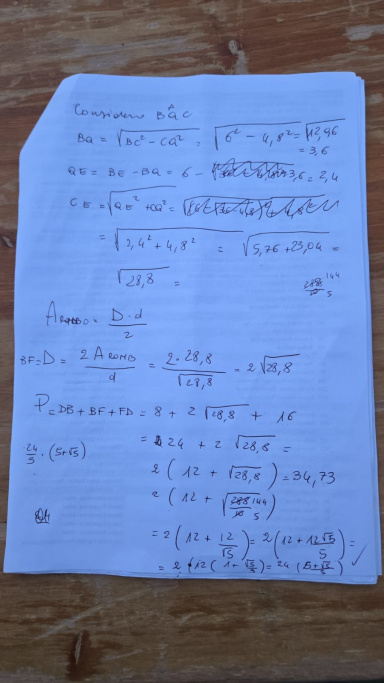 Considero BQ̂C
BQ = √BC² - CQ² = √6² - 4,8² = √12,96
= 3,6
QE = BE - BQ = 6 - 3,6 = 2,4
CE = √QE² + CQ² =
= √2,4² + 4,8² = √5,76 + 23,04 =
√28,8 =
288 144
10 5
A ROMBO = D · d / 2
BF = D = 2 A ROMB / d = 2 · 28,8 / √28,8 = 2 √28,8
P = DB + BF + FD = 8 + 2 √28,8 + 16
= 24 + 2 √28,8 =
24/5 · (5+√5)
2 ( 12 + √28,8 ) = 34,73
2 ( 12 + √288 144 / 10 5 )
= 2 ( 12 + 12/√5 ) = 2 ( 12 + 12√5 / 5 ) =
= 2 · 12 ( 1 + √5/5 ) = 24 ( 5+√5 / 5 )